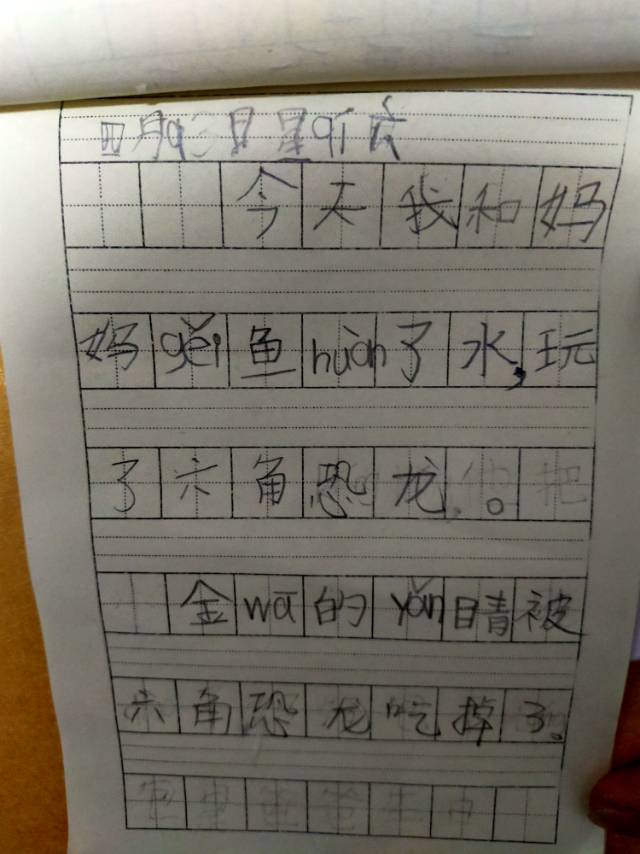 四月
今天我和妈
妈gěi鱼huàn了水,玩
了六角恐龙。
金wā的yǎn睛被
六角恐龙吃掉了。